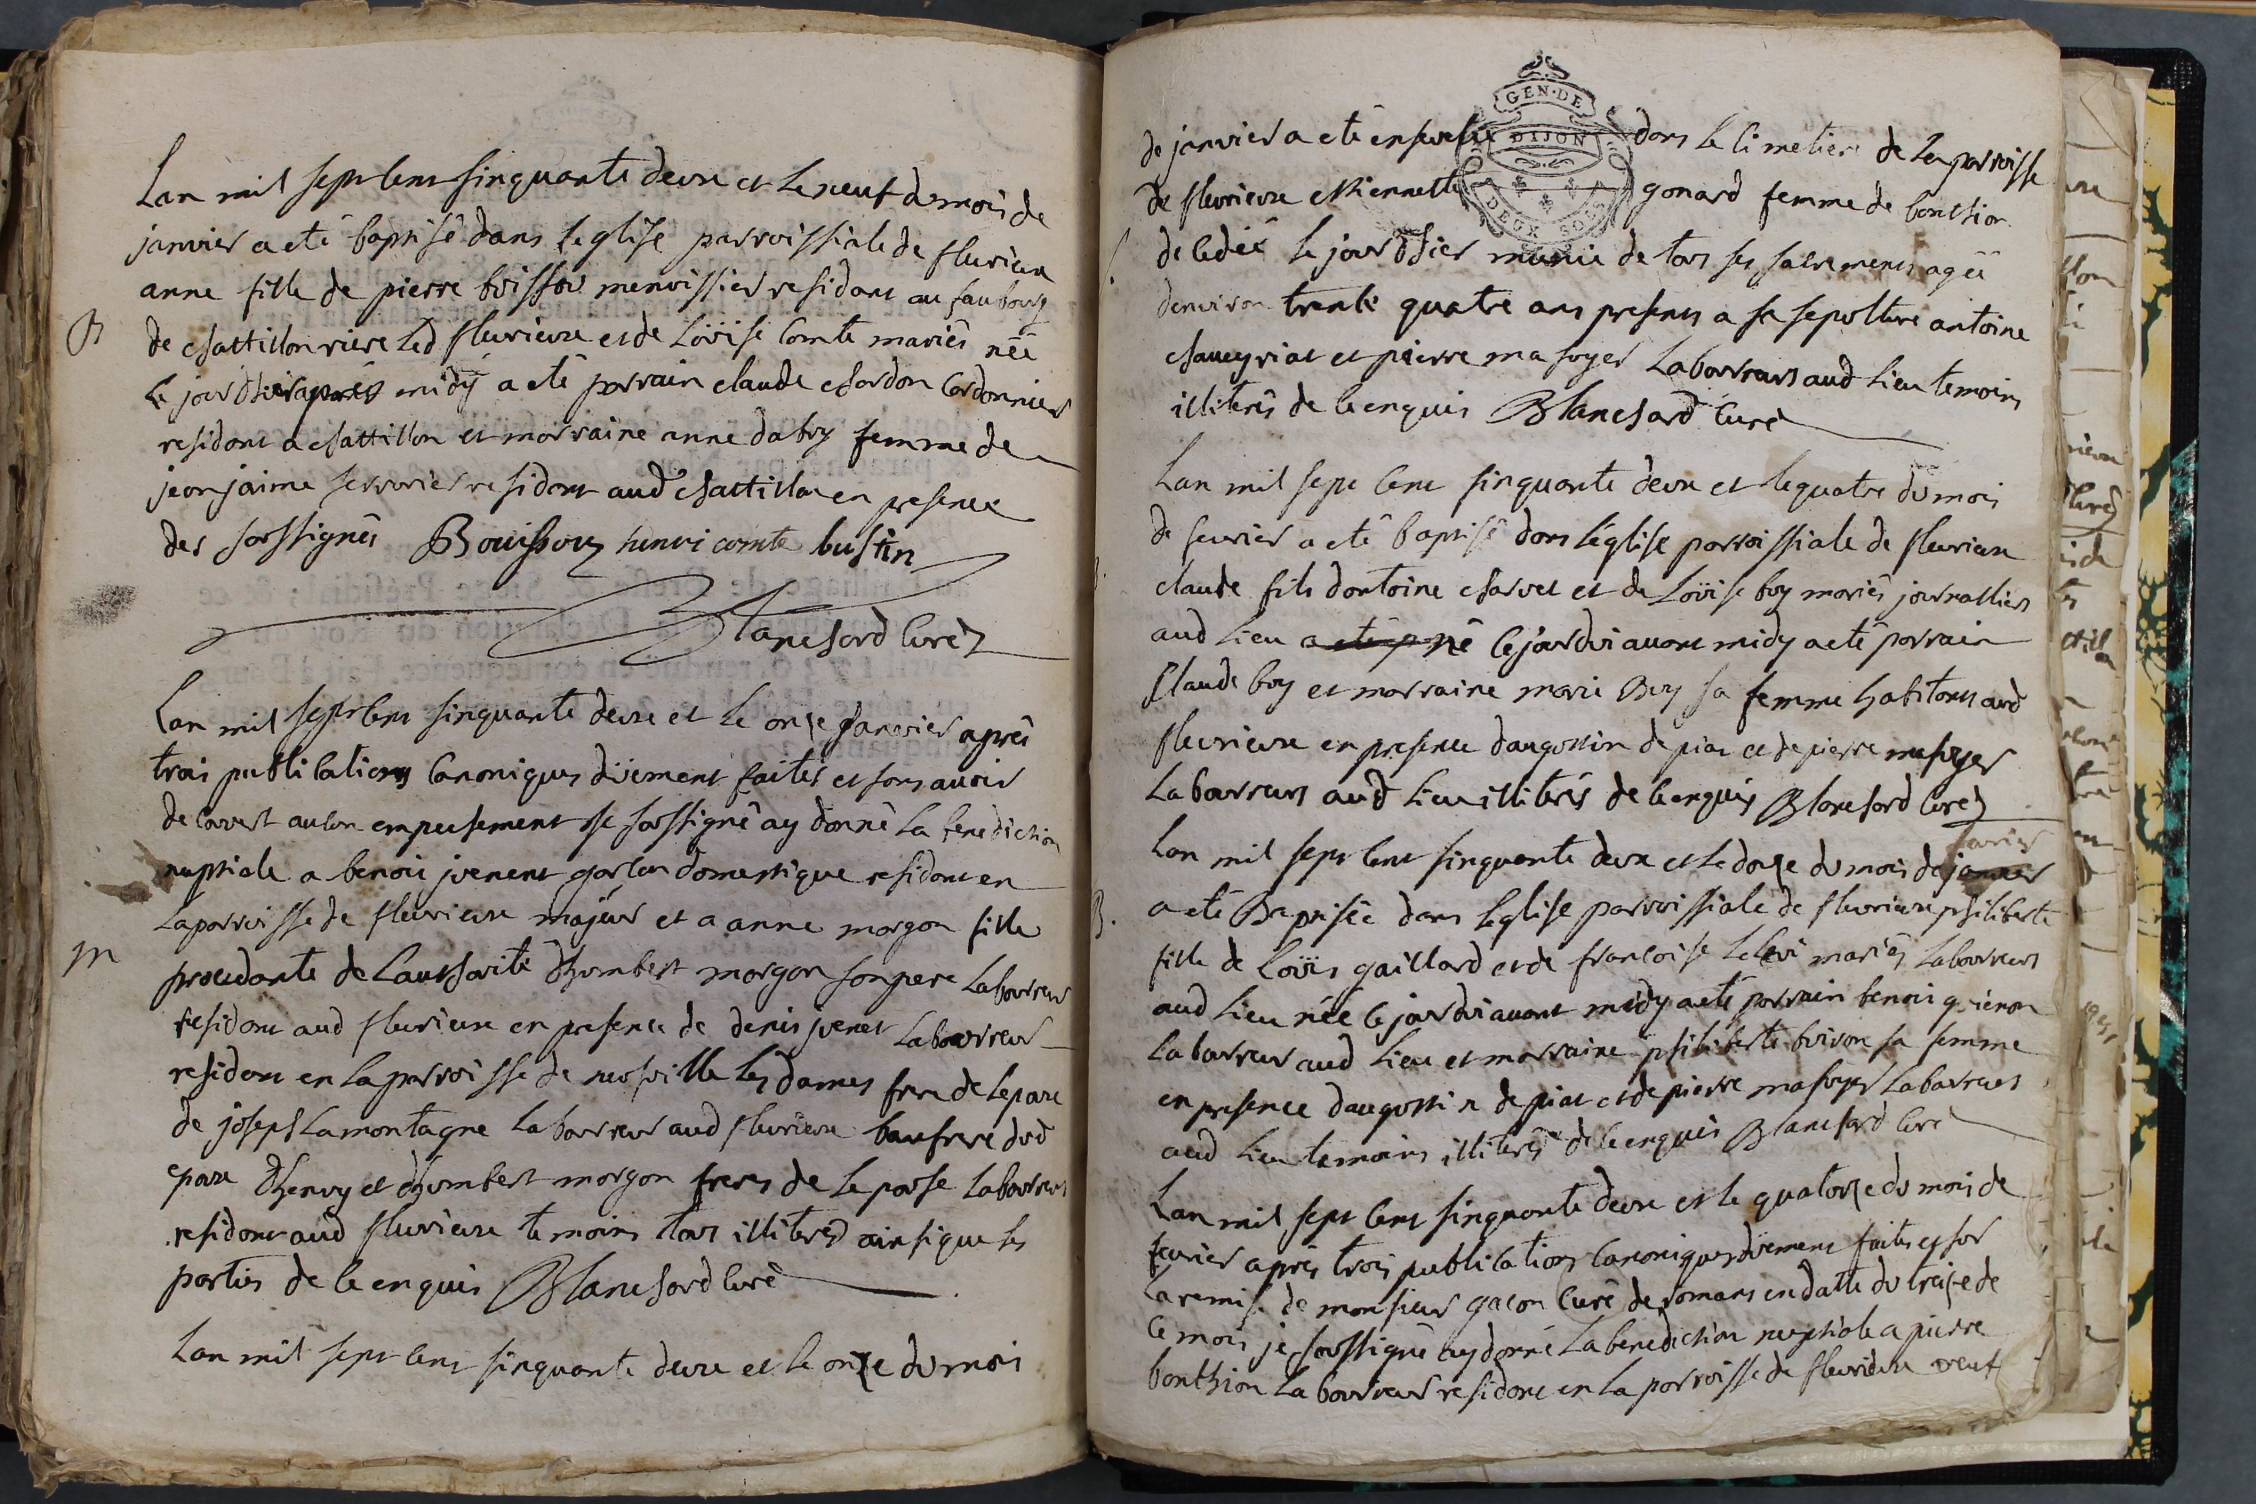 Lan mil sept cens sinquante deux et le neuf du mois de
janvier a eté baptisé dans leglise parroissiale de flurieux
anne fille de pierre buisson menuissier residant au faubourg
B
de chattillon riere led fleurieux et de Loüise Comte mariés née
le jour dhier aprés midÿ a eté parrain claude chardon Cordonnier
residant a chattillon et marraine anne dabry femme de
jean jaime serrurier residant aud chattillon en presence
des soussignés Bouisson henri comte bustin
Blanchard Curé
Lan mil sept cens sinquante deux et le onze janvier aprés
trois publications Canoniques düement faites et sans avoir
decouvert aucun empechement je soussigné ay donné La benediction
nuptiale a benoi juenent garcon domestique residant en
La parroisse de fleurieux majeur et a anne morgon fille
M
procedante de Lauthorité dhumbert morgon son pere Laboureur
residant aud flurieux en presence de denis juenet Laboureur
residant en La parroisse de neufville les dames frere de Lepoux
de joseph Lamontagne Laboureur aud flurieux beaufrere dud
epoux dhenry et dhumbert morgon freres de Lepouse Laboureurs
residant aud flurieux temoins tous illiterés ainsi que les
parties de ce enquis Blanchard Curé
Lan mil sept cens sinquante deux et le onze du mois
GEN·DE
DIJON
DEUX SOLS
de janvier a eté enseveli dans Le Cimetiere de La parroisse
de fleurieux ettiennette gonard femme de bonthion
decedeé le jour dhier munie de tous ses sacrements agée
denviron trente quatre ans presents a sa sepulture antoine
chaneyriat et pierre masuyer Laboureurs aud Lieu temoins
illiterés de ce enquis Blanchard Curé
Lan mil sept cens sinquante deux et le quatre du mois
de fevrier a eté baptisé dans Léglise parroissiale de fleurieux
claude fils dantoine charvet et de Loüise buy mariés journalliers
aud Lieu né cejourdui avant midy a eté parrain
Claude buy et marraine marie Buy sa femme habitants aud
fleurieux en presence daugustin depiat et de pierre masuyer
Laboureurs aud Lieu illiterés de ce enquis Blanchard Curé
Lan mil sept cens sinquante deux et le douze du mois de janvier
B.
a eté Baptisée dans Leglise parroissiale de fleurieux philiberte
fille de Loüis gaillard et de francoise mariés Laboureurs
aud Lieu née cejourdui avant midy a eté parrain benoi
Laboureur aud Lieu et marraine philiberte buiron sa femme
en presence daugustin depiat et de pierre masuyer Laboureurs
aud Lieu temoins illiterés de ce enquis Blanchard Curé
Lan mil sept cens sinquante deux et le quatorze du mois de
fevrier aprés trois publications Canoniques düement faites et sur
La remise de monsieur gacon Curé de romans en datte du treize de
ce mois je soussigné ay donné La benediction nuptiale a pierre
bonthion Laboureur residant en La parroisse de fleurieux veuf